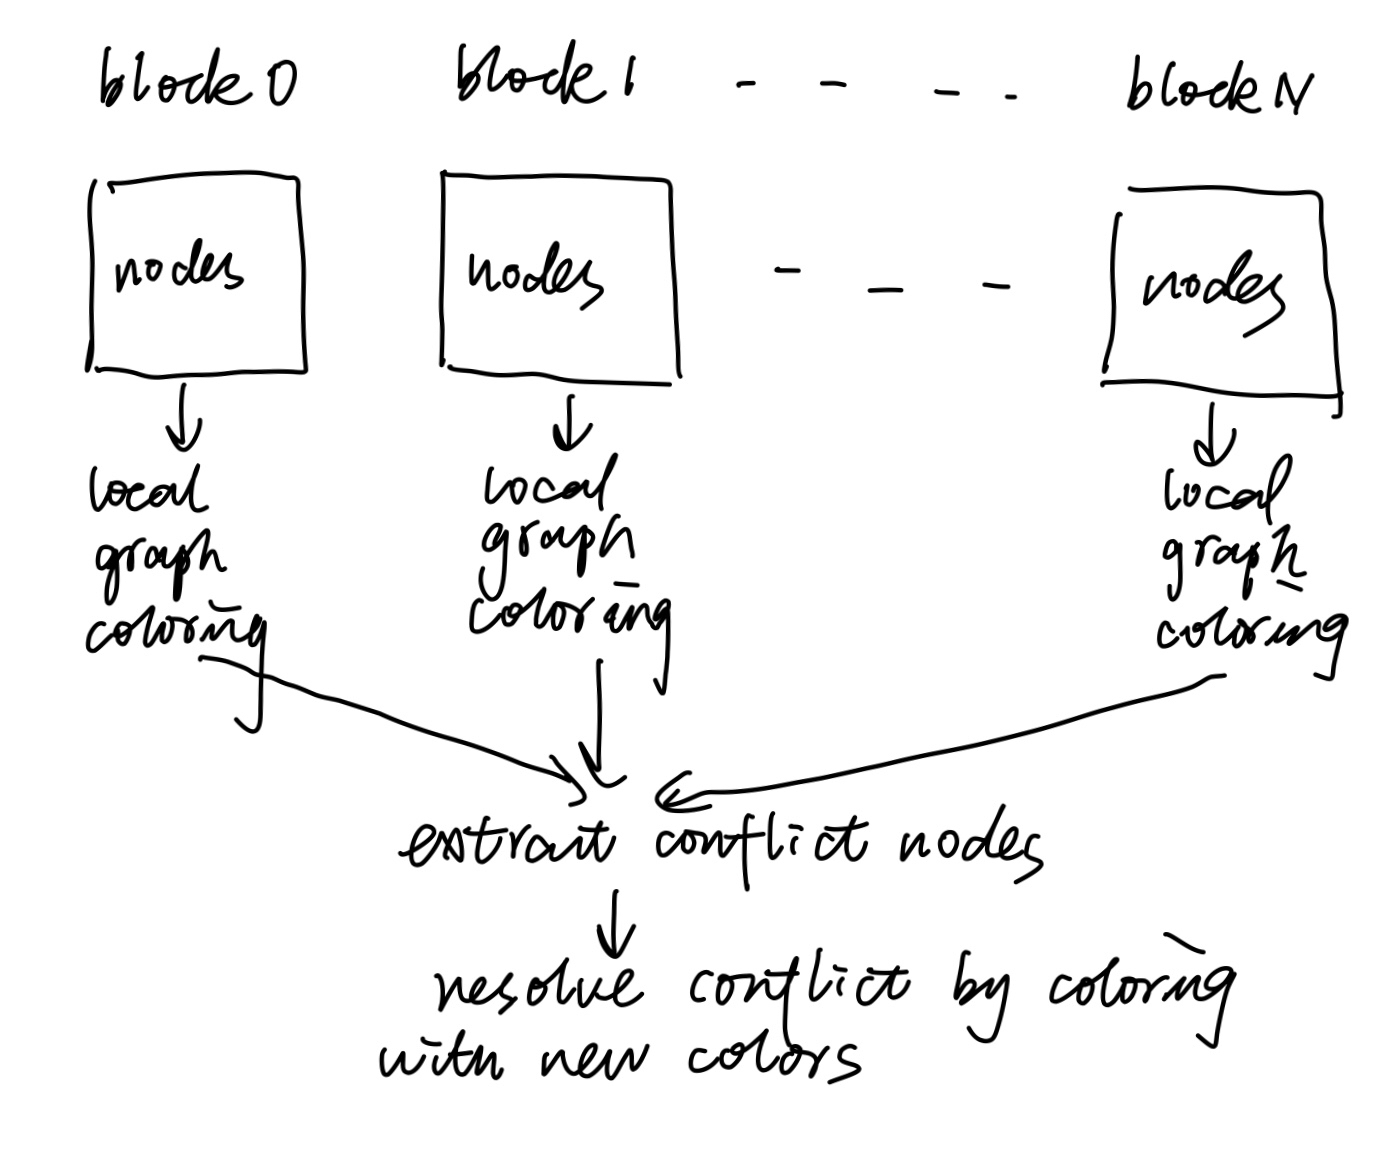 block 0
block 1
block N
nodes
nodes
nodes
local
graph
coloring
local
graph
coloring
local
graph
coloring
extract conflict nodes
resolve conflict by coloring
with new colors